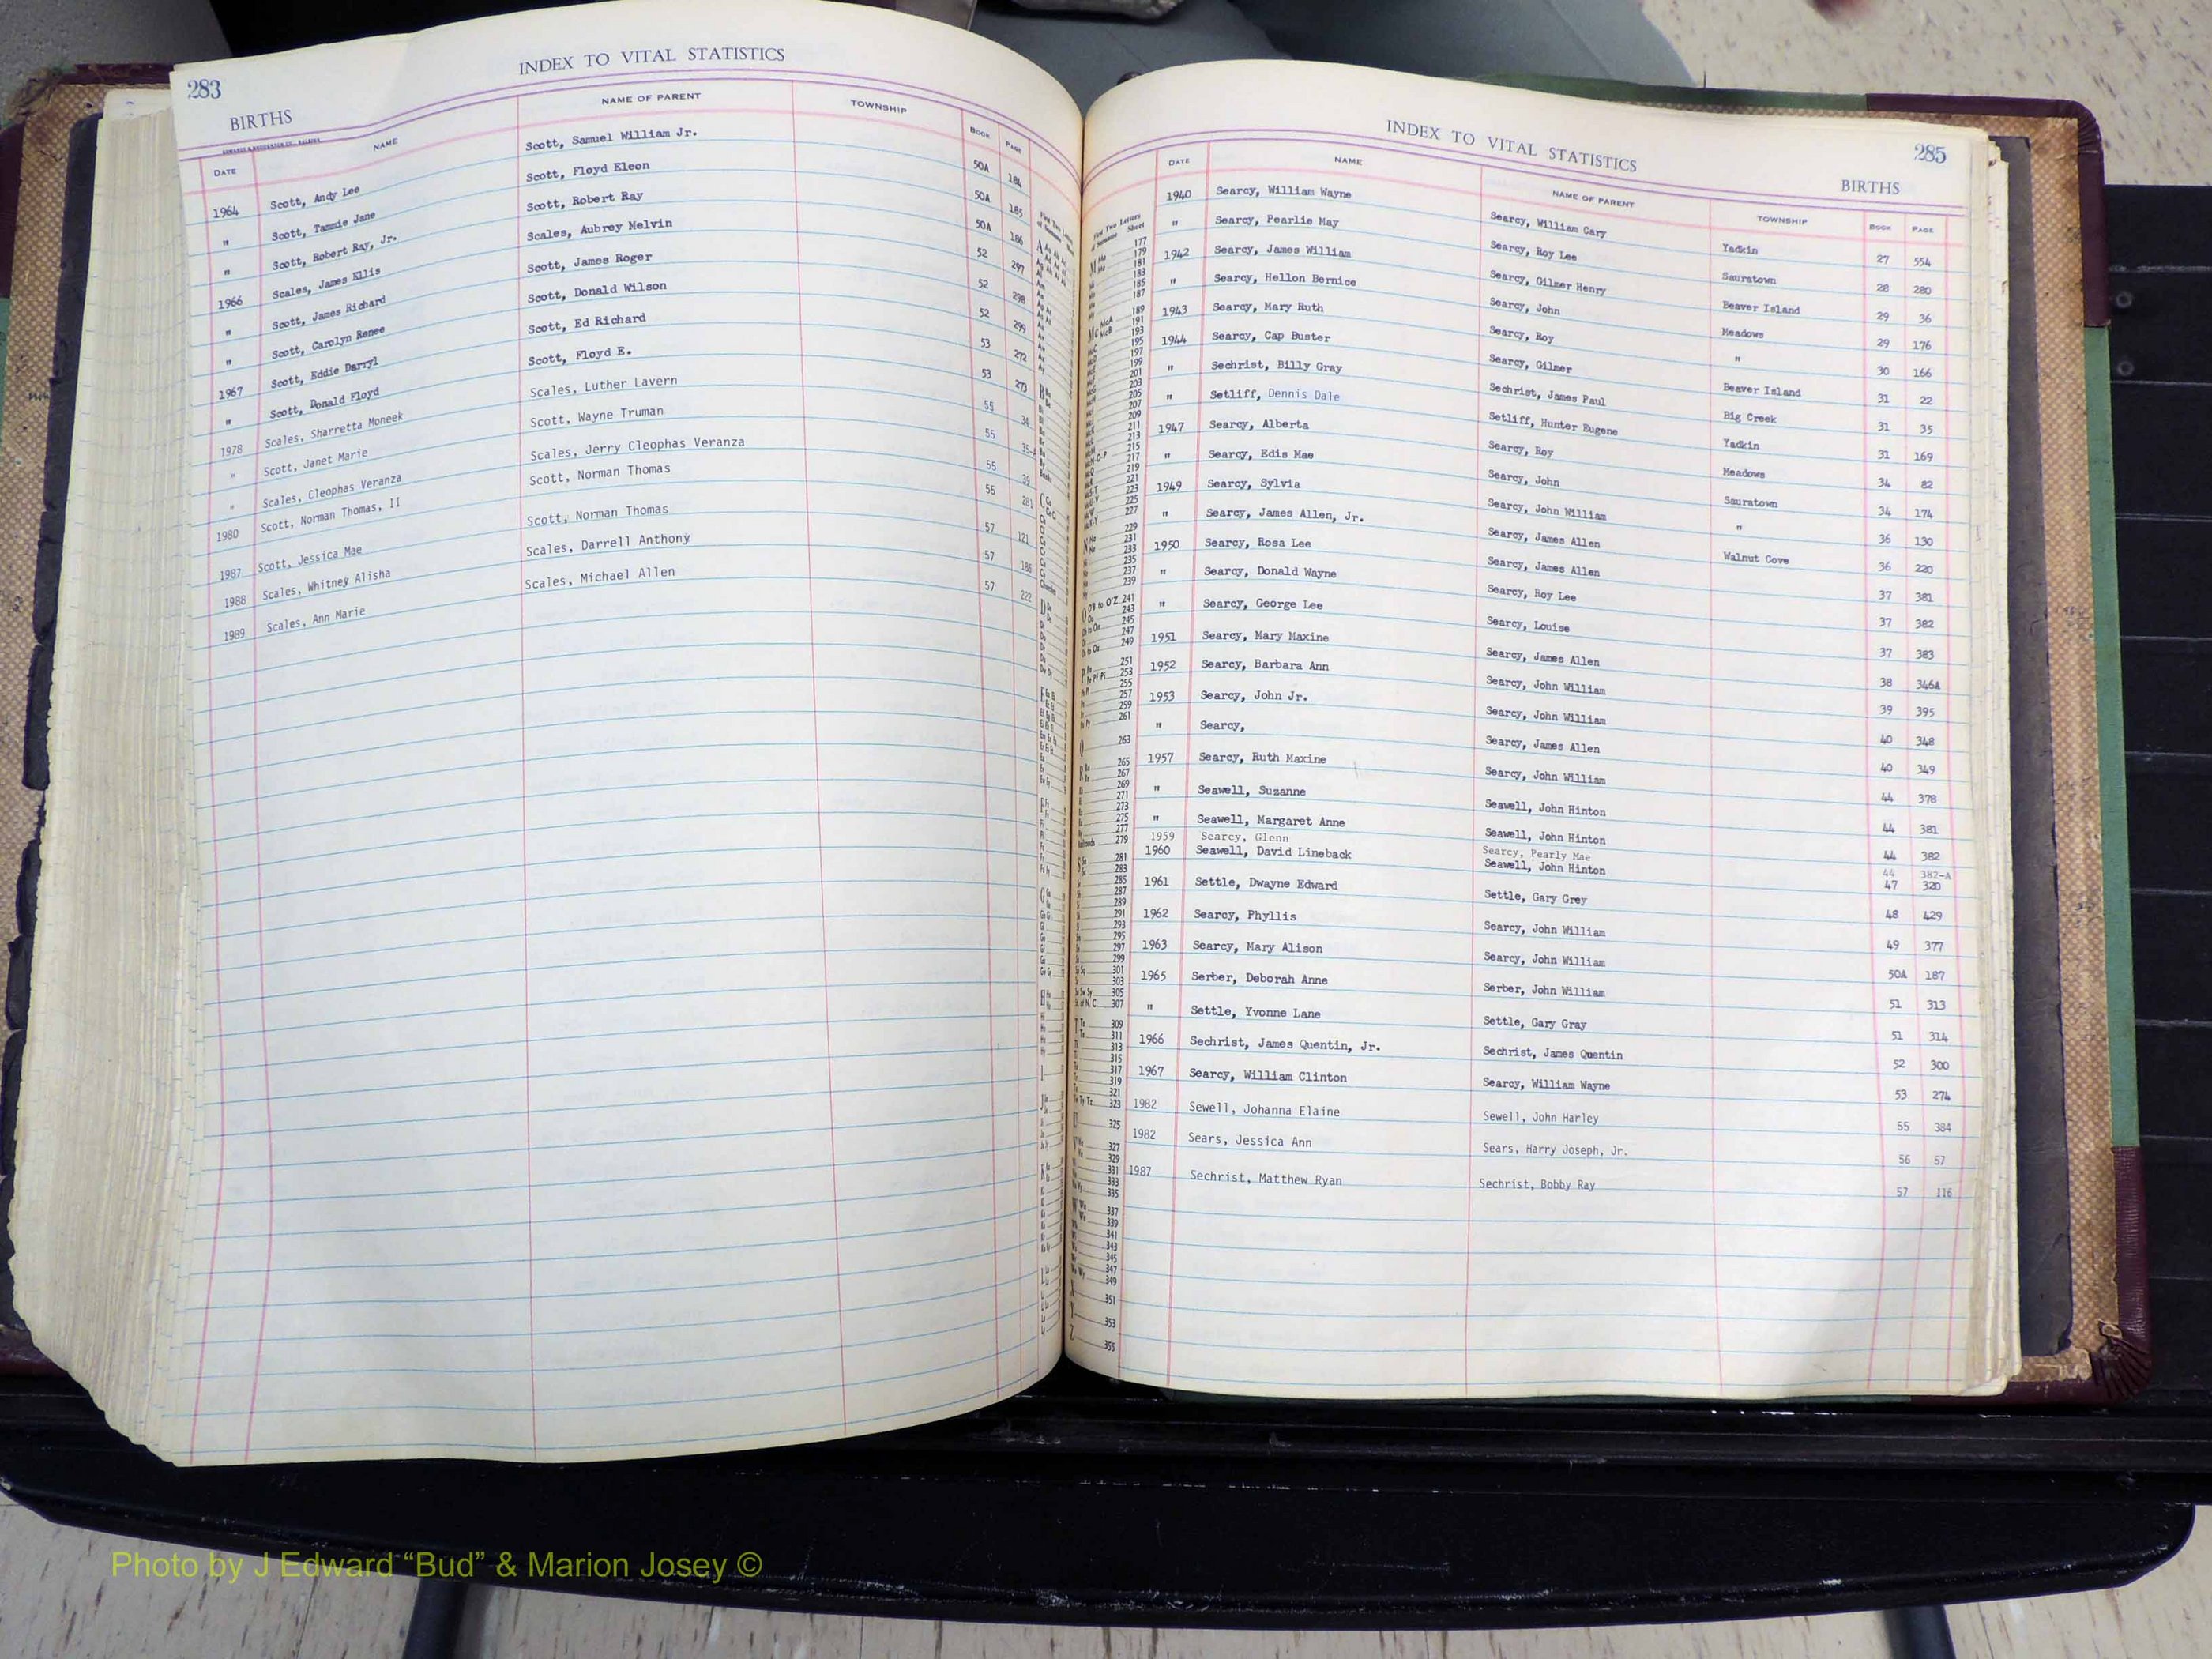 283
INDEX TO VITAL STATISTICS
BIRTHS
DATE NAME NAME OF PARENT TOWNSHIP BOOK PAGE
1964 Scott, Andy Lee Scott, Samuel William Jr. 50A 184
" Scott, Tammie Jane Scott, Floyd Eleon 50A 185
" Scott, Robert Ray, Jr. Scott, Robert Ray 50A 186
1966 Scales, James Ellis Scales, Aubrey Melvin 52 297
" Scott, James Richard Scott, James Roger 52 298
" Scott, Carolyn Renee Scott, Donald Wilson 52 299
1967 Scott, Eddie Darryl Scott, Ed Richard 53 272
" Scott, Donald Floyd Scott, Floyd E. 53 273
1978 Scales, Sharretta Moneek Scales, Luther Lavern 55 34
" Scott, Janet Marie Scott, Wayne Truman 55
" Scales, Cleophas Veranza Scales, Jerry Cleophas Veranza 55 39
1980 Scott, Norman Thomas, II Scott, Norman Thomas 55 281
1987 Scott, Jessica Mae Scott, Norman Thomas 57 121
1988 Scales, Whitney Alisha Scales, Darrell Anthony 57 186
1989 Scales, Ann Marie Scales, Michael Allen 57 222
INDEX TO VITAL STATISTICS
285
BIRTHS
DATE NAME NAME OF PARENT TOWNSHIP BOOK PAGE
1940 Searcy, William Wayne Searcy, William Cary Yadkin 27 554
" Searcy, Pearlie May Searcy, Roy Lee Sauratown 28 280
1942 Searcy, James William Searcy, Gilmer Henry Beaver Island 29 36
" Searcy, Hellon Bernice Searcy, John Meadows 29 176
1943 Searcy, Mary Ruth Searcy, Roy " 30 166
1944 Searcy, Cap Buster Searcy, Gilmer Beaver Island 31 22
" Sechrist, Billy Gray Sechrist, James Paul Big Creek 31 35
" Setliff, Dennis Dale Setliff, Hunter Eugene Yadkin 31 169
1947 Searcy, Alberta Searcy, Roy Meadows 34 82
" Searcy, Edis Mae Searcy, John Sauratown 34 174
1949 Searcy, Sylvia Searcy, John William " 36 130
" Searcy, James Allen, Jr. Searcy, James Allen Walnut Cove 36 220
1950 Searcy, Rosa Lee Searcy, James Allen 37 381
" Searcy, Donald Wayne Searcy, Roy Lee 37 382
" Searcy, George Lee Searcy, Louise 37 383
1951 Searcy, Mary Maxine Searcy, James Allen 38 346A
1952 Searcy, Barbara Ann Searcy, John William 39 395
1953 Searcy, John Jr. Searcy, John William 40 348
" Searcy, Searcy, James Allen 40 349
1957 Searcy, Ruth Maxine Searcy, John William 44 378
" Seawell, Suzanne Seawell, John Hinton 44 381
" Seawell, Margaret Anne Seawell, John Hinton 44 382
1959 Searcy, Glenn Searcy, Pearly Mae 44 382-A
1960 Seawell, David Lineback Seawell, John Hinton 47 320
1961 Settle, Dwayne Edward Settle, Gary Grey 48 429
1962 Searcy, Phyllis Searcy, John William 49 377
1963 Searcy, Mary Alison Searcy, John William 50A 187
1965 Serber, Deborah Anne Serber, John William 51 313
" Settle, Yvonne Lane Settle, Gary Gray 51 314
1966 Sechrist, James Quentin, Jr. Sechrist, James Quentin 52 300
1967 Searcy, William Clinton Searcy, William Wayne 53 274
1982 Sewell, Johanna Elaine Sewell, John Harley 55 384
1982 Sears, Jessica Ann Sears, Harry Joseph, Jr. 56 57
1987 Sechrist, Matthew Ryan Sechrist, Bobby Ray 57 116
Photo by J Edward “Bud” & Marion Josey ©